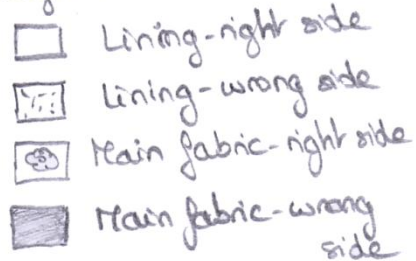 Lining-right side
Lining-wrong side
Main fabric-right side
Main fabric-wrong
side